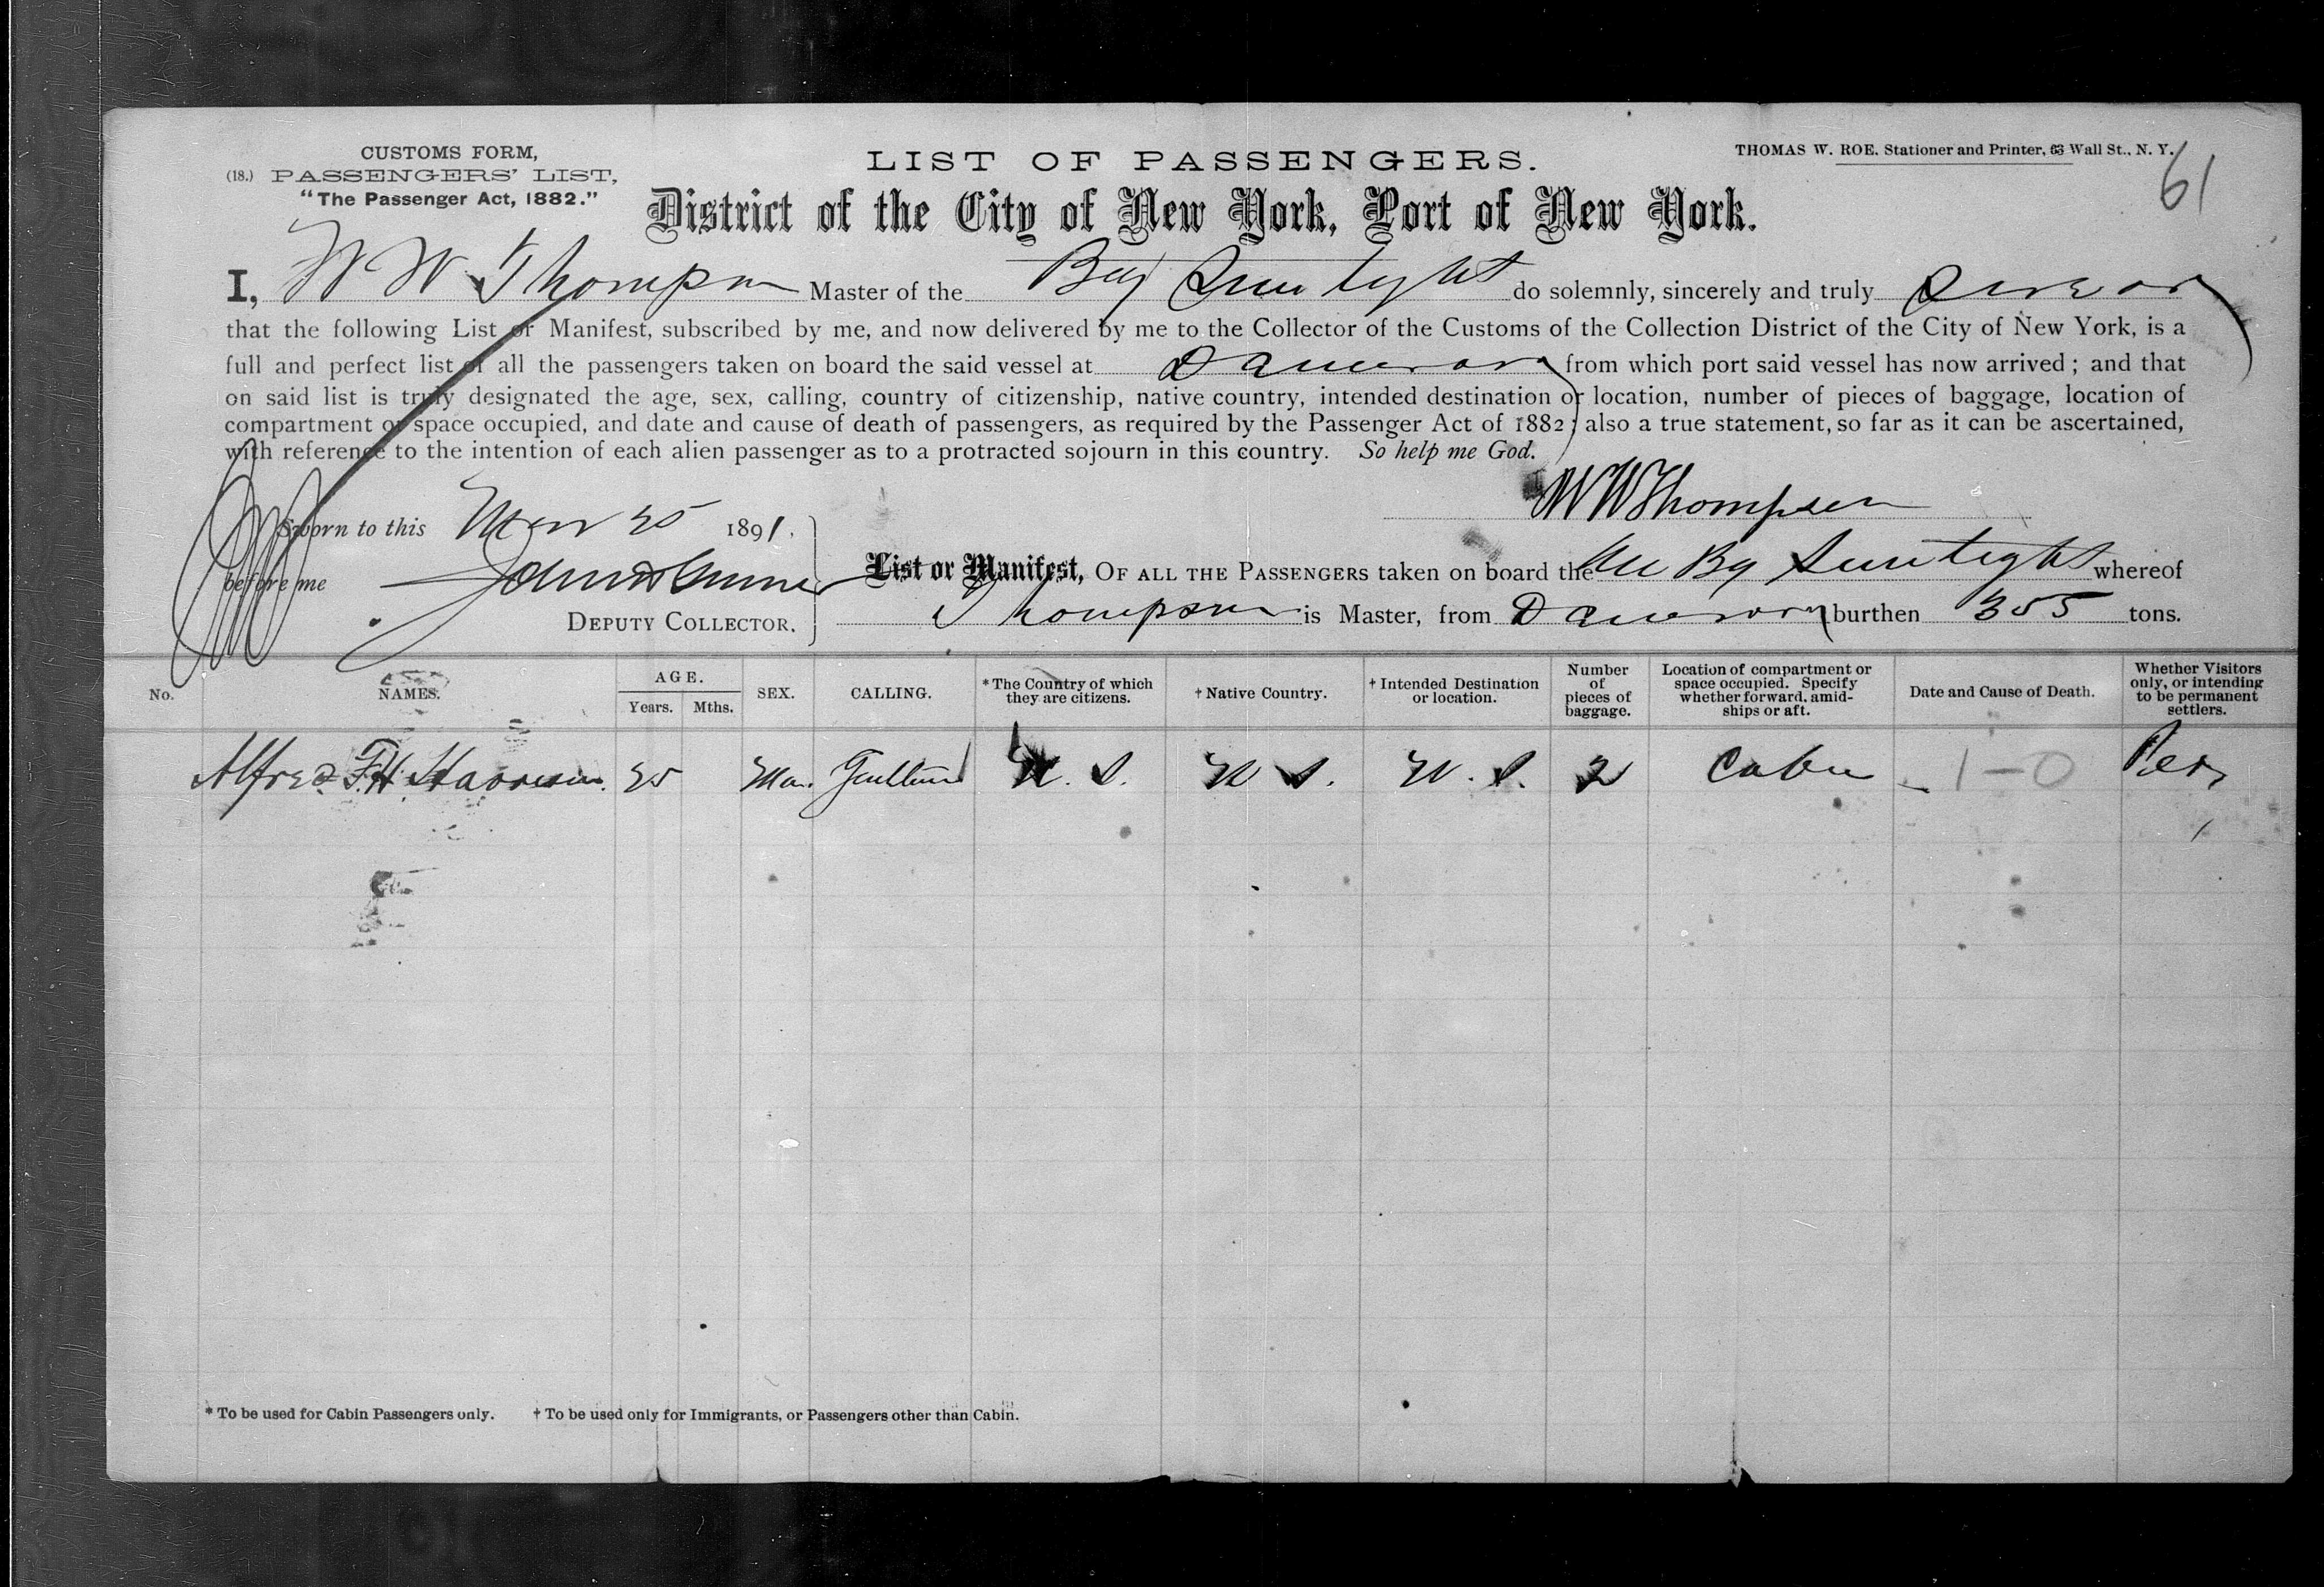 CUSTOMS FORM,
(18.) PASSENGERS' LIST,
"The Passenger Act, 1882."
LIST OF PASSENGERS.
THOMAS W. ROE. Stationer and Printer, 63 Wall St., N. Y.
61
District of the City of New York, Port of New York.
I, W W Thompson Master of the Bg Sunlight do solemnly, sincerely and truly swear
that the following List or Manifest, subscribed by me, and now delivered by me to the Collector of the Customs of the Collection District of the City of New York, is a
full and perfect list of all the passengers taken on board the said vessel at from which port said vessel has now arrived; and that
on said list is truly designated the age, sex, calling, country of citizenship, native country, intended destination or location, number of pieces of baggage, location of
compartment or space occupied, and date and cause of death of passengers, as required by the Passenger Act of 1882; also a true statement, so far as it can be ascertained,
with reference to the intention of each alien passenger as to a protracted sojourn in this country. So help me God.
WWThompson
Sworn to this 25 1891.
before me
DEPUTY COLLECTOR.
List or Manifest, OF ALL THE PASSENGERS taken on board the Bg Sunlight whereof
Thompson is Master, from burthen 355 tons.
No. NAMES. AGE. Years. Mths. SEX. CALLING. *The Country of which they are citizens. † Native Country. † Intended Destination or location. Number of pieces of baggage. Location of compartment or space occupied. Specify whether forward, amidships or aft. Date and Cause of Death. Whether Visitors only, or intending to be permanent settlers.
Alfred F.H. Harrison. 25 U. S. U S. U. S. 2 Cabin 1-0
* To be used for Cabin Passengers only. † To be used only for Immigrants, or Passengers other than Cabin.